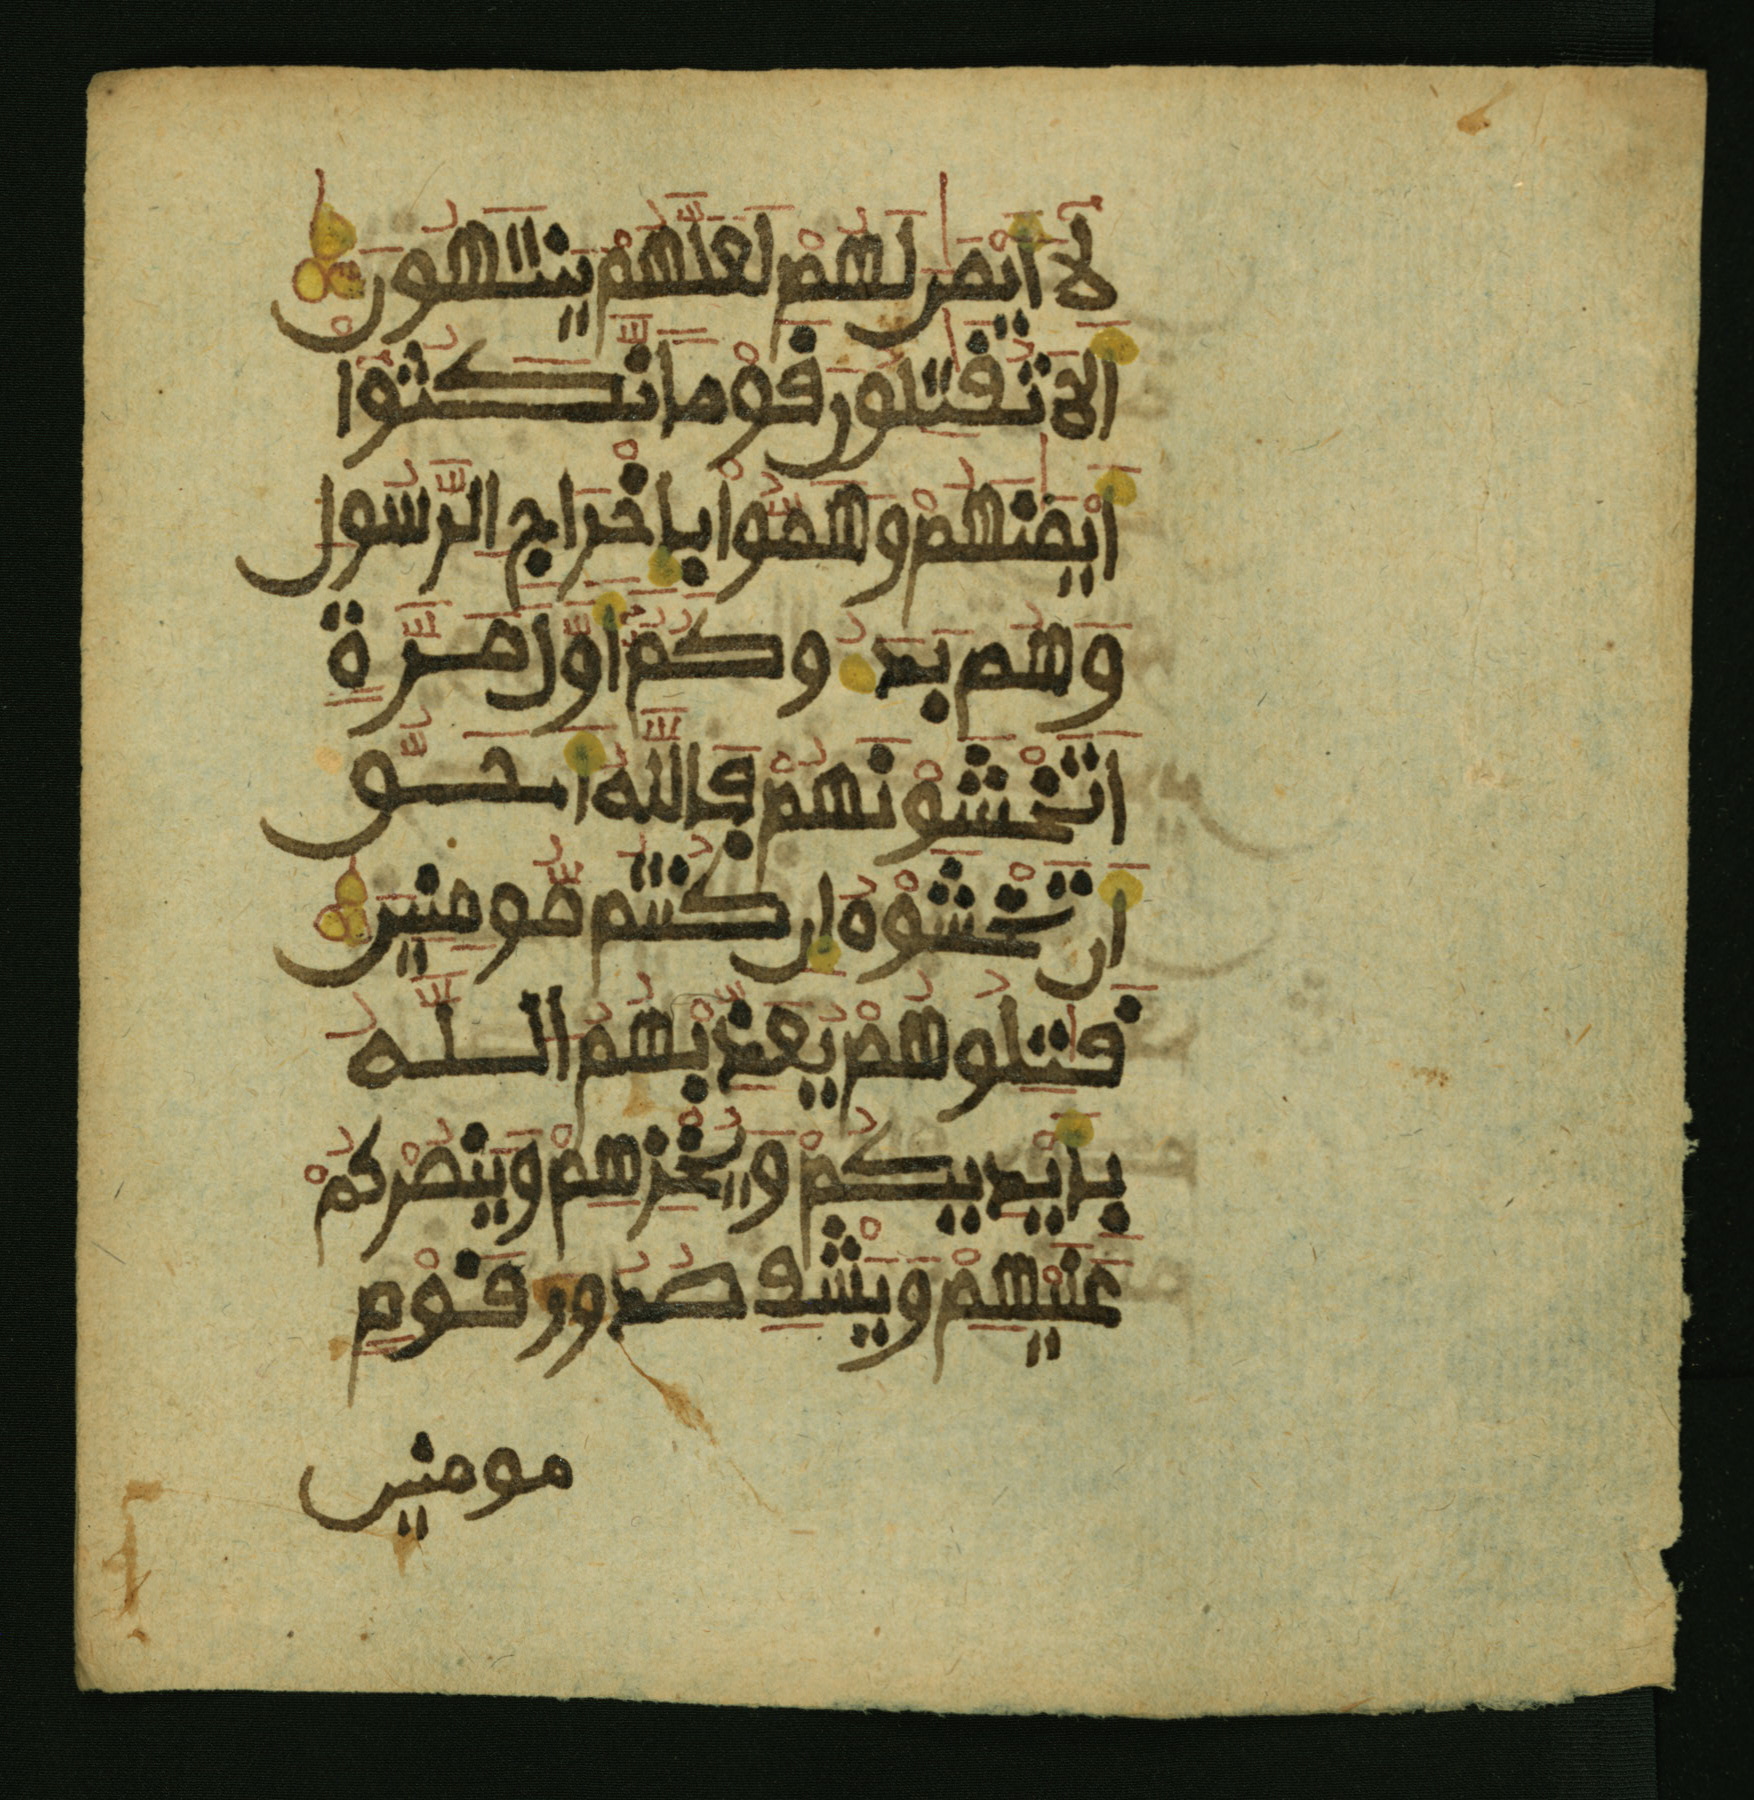 لَا أَيْمَٰنَ لَهُمْ لَعَلَّهُمْ يَنتَهُونَ
أَلَا تُقَٰتِلُونَ قَوْمًا نَّكَثُوٓا
أَيْمَٰنَهُمْ وَهَمُّوا بِإِخْرَاجِ الرَّسُولِ
وَهُم بَدَءُوكُمُ أَوَّلَ مَرَّةٍ
أَتَخْشَوْنَهُمْ فَاللَّهُ أَحَقُّ
أَن تَخْشَوْهُ إِن كُنتُم مُّومِنِينَ
قَٰتِلُوهُمْ يُعَذِّبْهُمُ اللَّهُ
بِأَيْدِيكُمْ وَيُخْزِهِمْ وَيَنصُرْكُمْ
عَلَيْهِمْ وَيَشْفِ صُدُورَ قَوْمٍ
مومنين